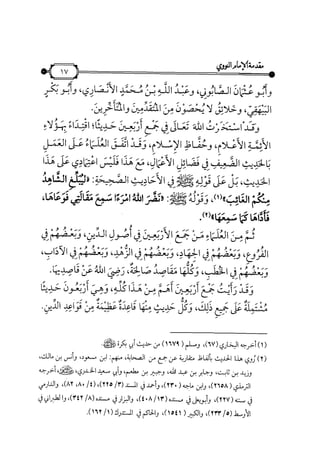 مقدمة الإمام النووي
١٧
وأَبُو عُثْمَانَ الصَّابُونِي، وعَبْدُ اللَّـهِ بْنُ مُحَمَّدٍ الأَنْصَارِي، وأَبُو بَكْرٍ
البَيْهَقِيّ، وخَلَائِقُ لَا يُحْصَوْنَ مِنَ المُتَقَدِّمِينَ والْمُتَأَخِّرِينَ.
وقَدْ اسْتَخَرْتُ اللهَ تَعَالَى فِي جَمْعِ أَرْبَعِينَ حَدِيثًا؛ اقْتِدَاءً بِهَؤُلَاءِ
الأَئِمَّةِ الأَعْلَامِ، وحُفَّاظِ الإِسْلَامِ، وقَدْ اتَّفَقَ الْعُلَمَاءُ عَلَى الْعَمَلِ
بِالْحَدِيثِ الضَّعِيفِ فِي فَضَائِلِ الأَعْمَالِ، مَعَ هَذَا فَلَيْسَ اعْتِمَادِي عَلَى هَذَا
الْحَدِيثِ، بَلْ عَلَى قَوْلِهِ ﷺ فِي الأَحَادِيثِ الصَّحِيحَةِ: «لِيُبَلِّغِ الشَّاهِدُ
مِنْكُمُ الْغَائِبَ»(١)، وقَوْلُهُ ﷺ: «نَضَّرَ اللهُ امْرَءًا سَمِعَ مَقَالَتِي فَوَعَاهَا،
فَأَدَّاهَا كَمَا سَمِعَهَا»(٢).
ثُمَّ مِنَ الْعُلَمَاءِ مَنْ جَمَعَ الأَرْبَعِينَ فِي أُصُولِ الدِّينِ، وبَعْضُهُمْ فِي
الْفُرُوعِ، وبَعْضُهُمْ فِي الْجِهَادِ، وبَعْضُهُمْ فِي الزُّهْدِ، وبَعْضُهُمْ فِي الآدَابِ،
وبَعْضُهُمْ فِي الْخُطَبِ، وكُلُّهَا مَقَاصِدُ صَالِحَةٌ، رَضِيَ اللهُ عَنْ قَاصِدِيهَا.
وقَدْ رَأَيْتُ جَمْعَ أَرْبَعِينَ أَهَمَّ مِنْ هَذَا كُلِّهِ، وهِيَ أَرْبَعُونَ حَدِيثًا
مُشْتَمِلَةٌ عَلَى جَمِيعِ ذَلِكَ، وكُلُّ حَدِيثٍ مِنْهَا قَاعِدَةٌ عَظِيمَةٌ مِنْ قَوَاعِدِ الدِّينِ.
(١) أخرجه البخاري (٦٧)، ومسلم (١٦٧٩) من حديث أبي بكرة
(٢) رُوِي هذا الحديث بألفاظ متقاربة عن جمع من الصحابة، منهم: ابن مسعود، وأنس بن مالك،
وزيد بن ثابت، وجابر بن عبد الله، وجبير بن مطعم، وأبي سعيد الخدري، أخرجه
الترمذي (٢٦٥٨)، وابن ماجه (٢٣٠)، وأحمد في المسند (٣/ ٢٢٥)، (٤/ ٨٠، ٨٢)، والدارمي
في سننه (٢٢٧)، وأبو يعلى في مسنده (١٣/ ٤٠٨)، والبزار في مسنده (٨/ ٣٤٢)، والطبراني في
الأوسط (٥/ ٢٣٣)، والكبير (١٥٤١)، والحاكم في المستدرك (١/ ١٦٢).